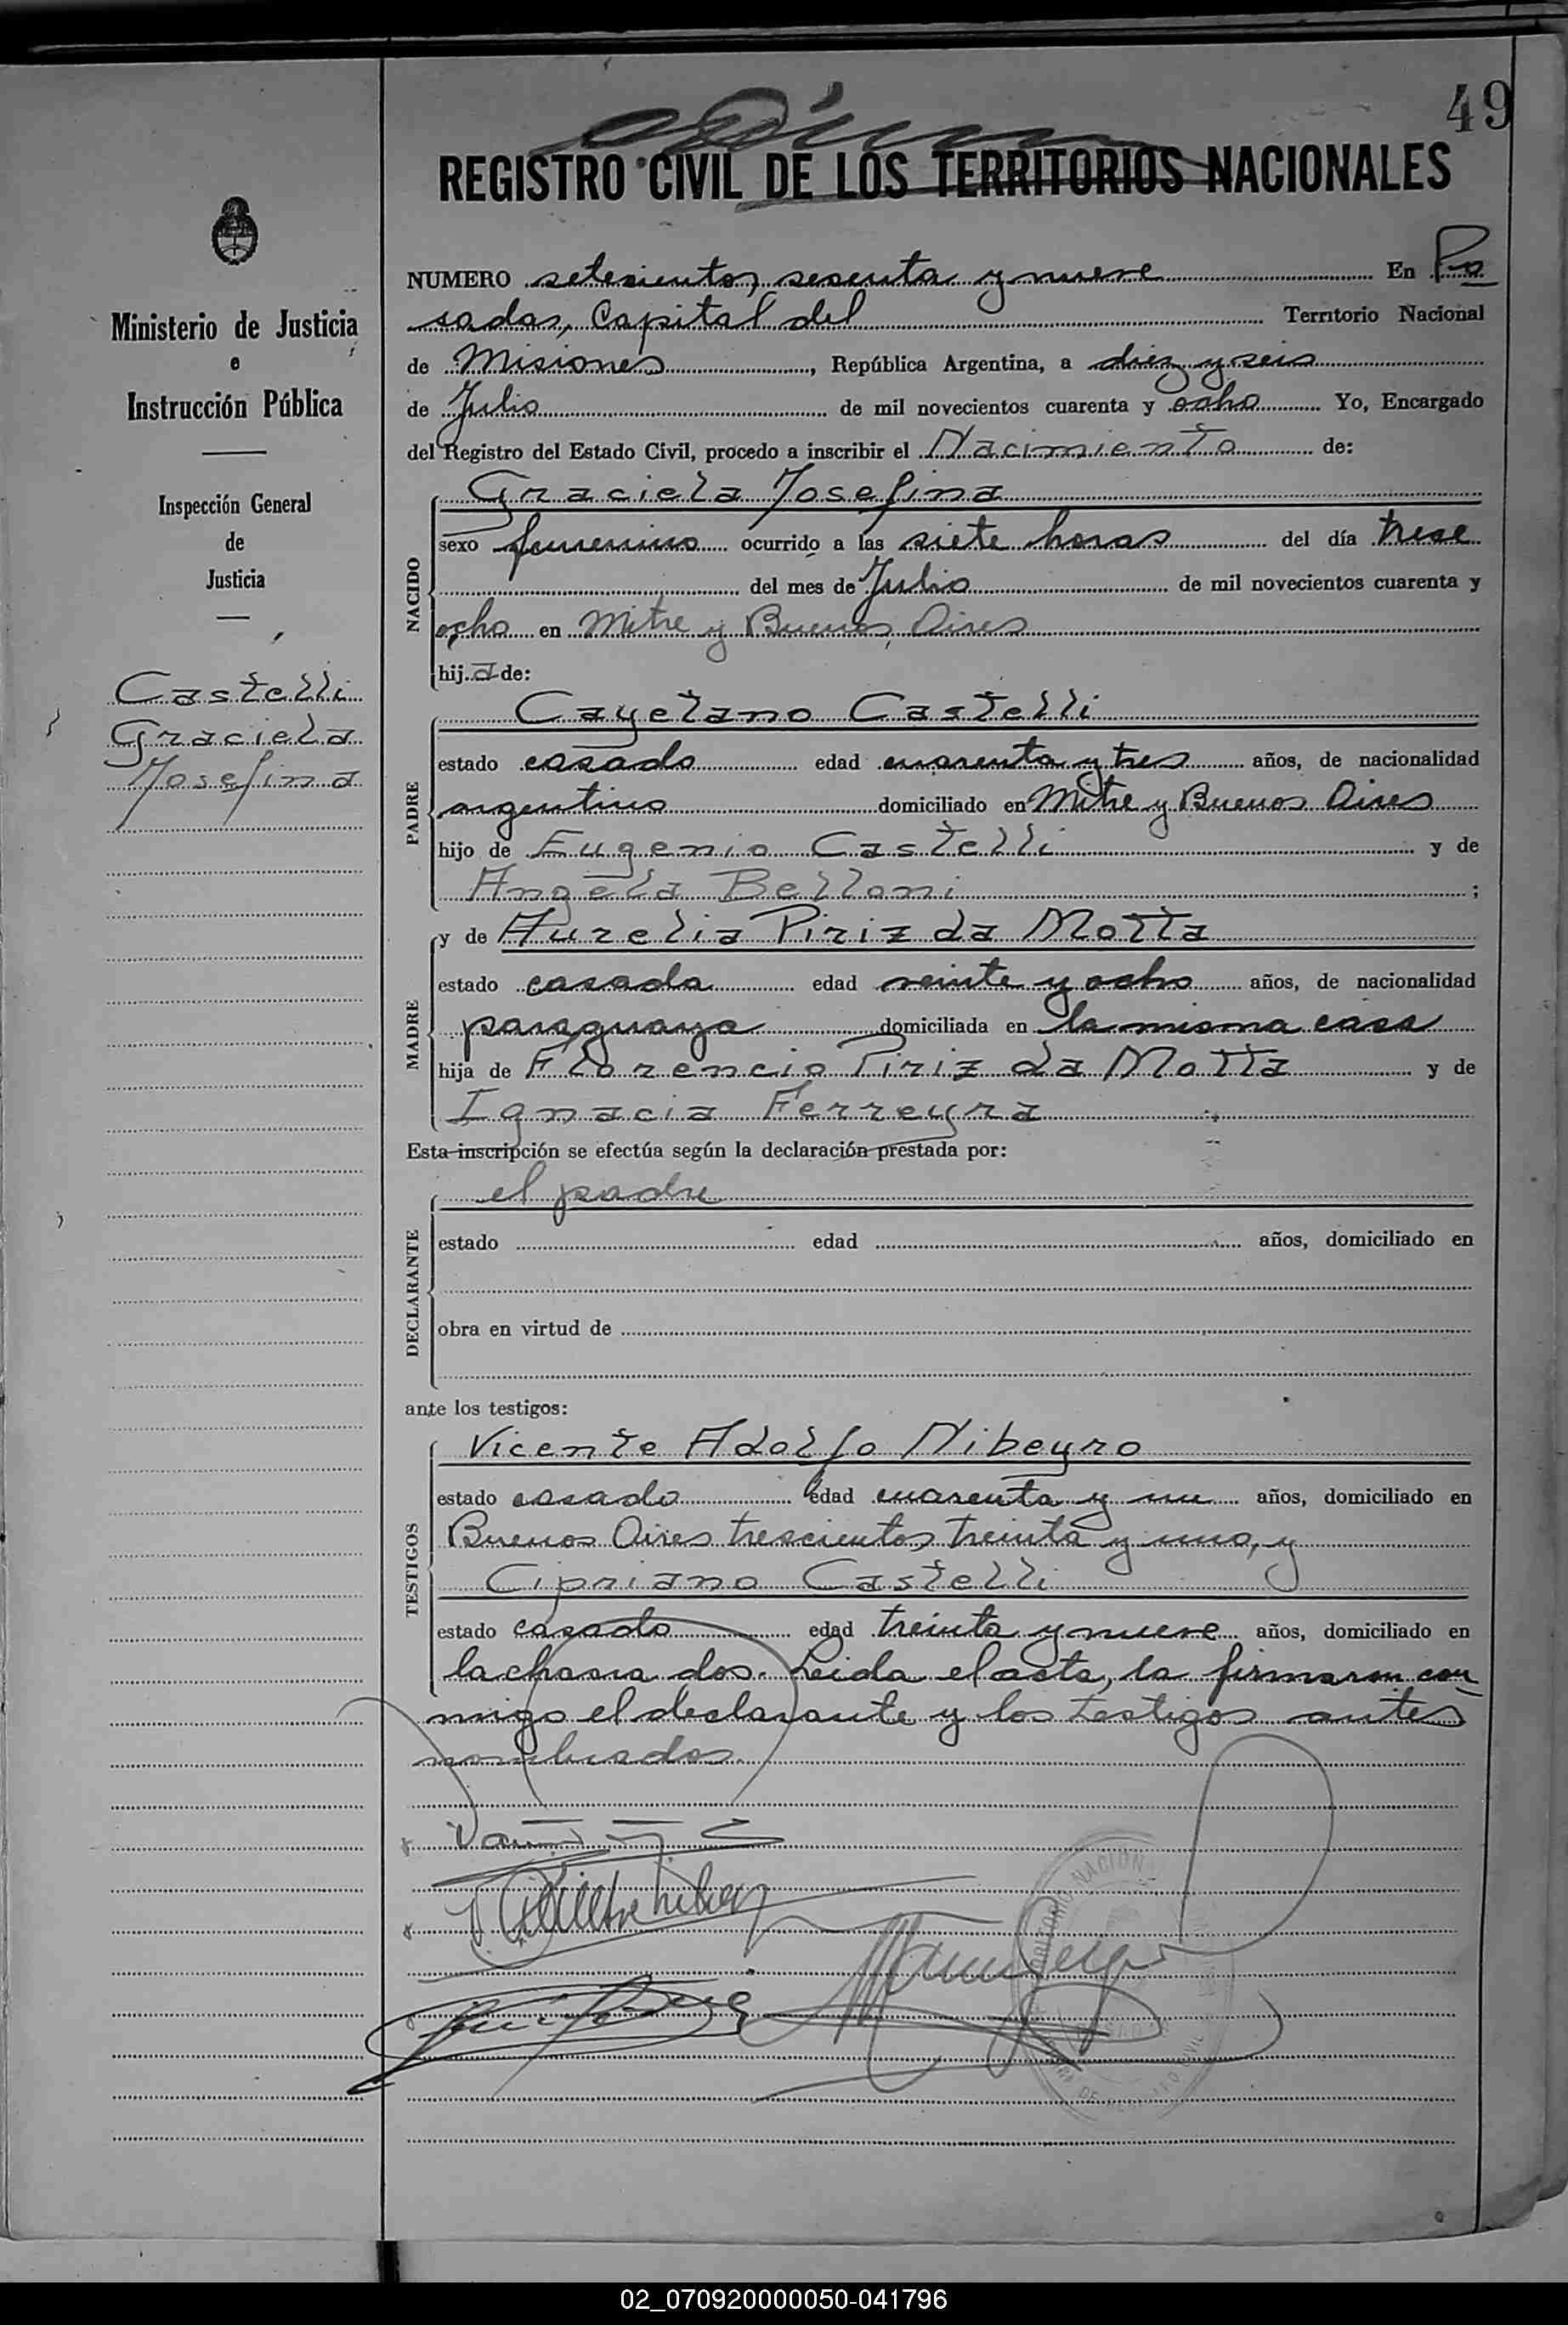 49
REGISTRO CIVIL DE LOS TERRITORIOS NACIONALES
Ministerio de Justicia
e
Instrucción Pública
Inspección General
de
Justicia
Castelli
Graciela
Josefina
NUMERO setecientos sesenta y nueve En Po
sadas, Capital del Territorio Nacional
de Misiones, República Argentina, a diez y seis
de Julio de mil novecientos cuarenta y ocho Yo, Encargado
del Registro del Estado Civil, procedo a inscribir el Nacimiento de:
Graciela Josefina
NACIDO
sexo femenino ocurrido a las siete horas del día trece
del mes de Julio de mil novecientos cuarenta y
ocho en Mitre y Buenos Aires
hija de:
Cayetano Castelli
PADRE
estado casado edad cuarenta y tres años, de nacionalidad
argentino domiciliado en Mitre y Buenos Aires
hijo de Eugenio Castelli y de
Angela Belloni;
y de Aurelia Piriz da Motta
MADRE
estado casada edad veinte y ocho años, de nacionalidad
paraguaya domiciliada en la misma casa
hija de Florencio Piriz da Motta y de
Ignacia Ferreyra
Esta inscripción se efectúa según la declaración prestada por:
el padre
DECLARANTE
estado edad años, domiciliado en
obra en virtud de
ante los testigos:
Vicente Adolfo Nibeyro
TESTIGOS
estado casado edad cuarenta y un años, domiciliado en
Buenos Aires trescientos treinta y uno, y
Cipriano Castelli
estado casado edad treinta y nueve años, domiciliado en
la chacra dos. Leida el acta, la firmaron con
migo el declarante y los testigos antes
nombrados.
02_070920000050-041796